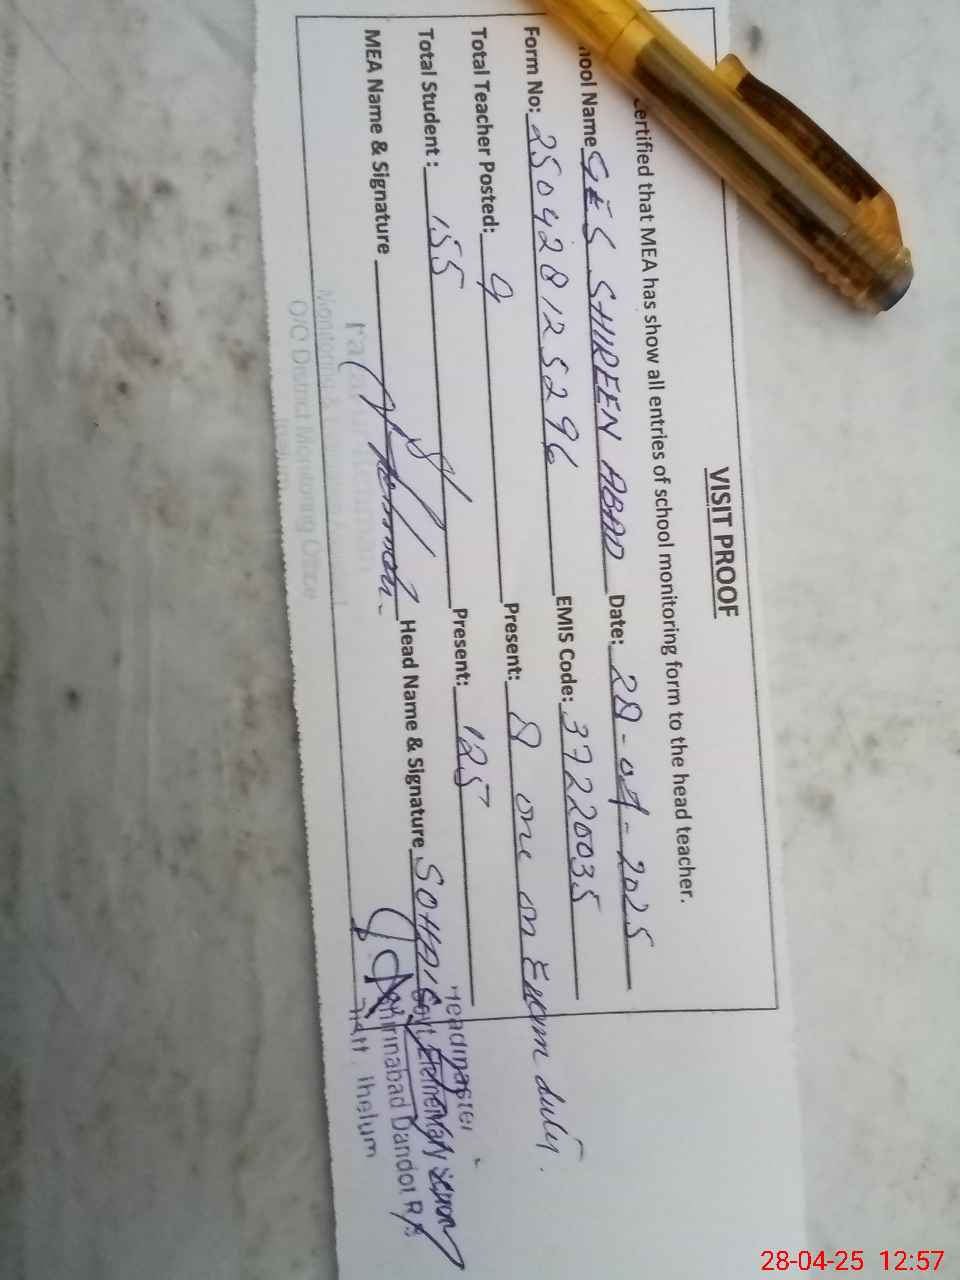 VISIT PROOF
Certified that MEA has show all entries of school monitoring form to the head teacher.
hool Name GES SHIREEN ABAD Date: 28-04-2025
Form No: 2504281257296 EMIS Code: 37220035
Total Teacher Posted: 9 Present: 8 one on Exam duty.
Total Student : 155 Present: 125
MEA Name & Signature Head Name & Signature SOHAIL
Headmaster
Govt Elementary School
Shirinabad Dandot R/S
Distt Jhelum
Monitoring &
O/O District Monitoring Office
28-04-25 12:57